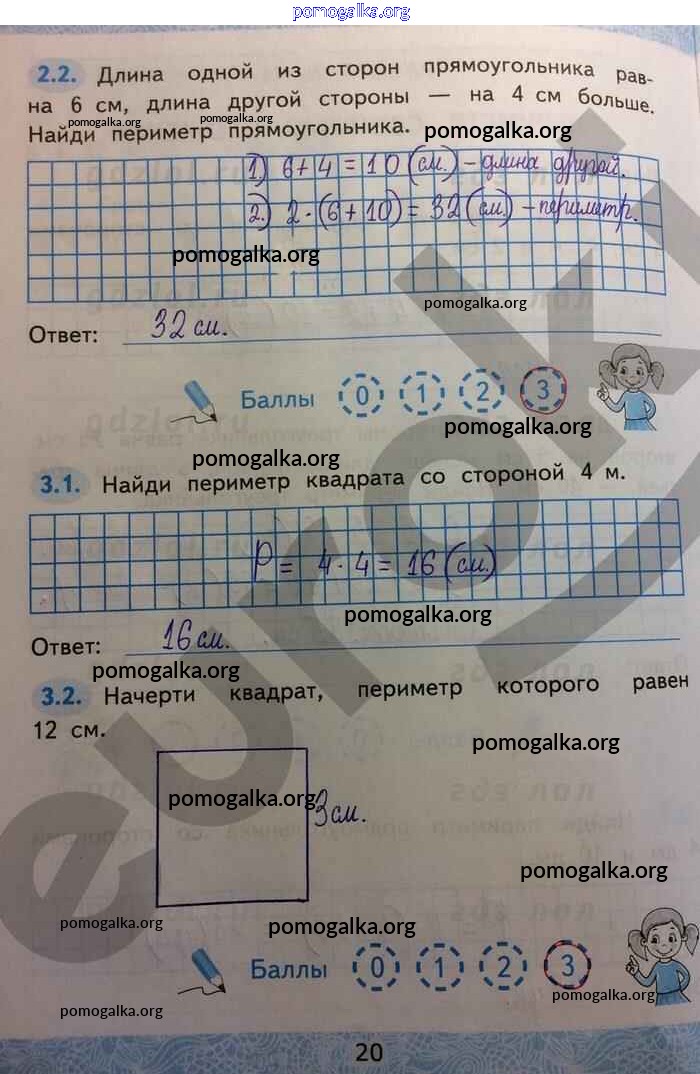 pomogalka.org
2.2. Длина одной из сторон прямоугольника рав-
на 6 см, длина другой стороны — на 4 см больше.
pomogalka.org pomogalka.org
Найди периметр прямоугольника. pomogalka.org
1) 6+4=10 (см.) - длина другой.
2.) 2·(6+10)=32 (см.) - периметр.
pomogalka.org
pomogalka.org
Ответ: 32 см.
Баллы 0 1 2 3
pomogalka.org
pomogalka.org
3.1. Найди периметр квадрата со стороной 4 м.
P= 4·4=16 (см.)
pomogalka.org
Ответ: 16 см.
pomogalka.org
3.2. Начерти квадрат, периметр которого равен
12 см.
pomogalka.org
pomogalka.org 3см.
pomogalka.org
pomogalka.org pomogalka.org
Баллы 0 1 2 3
pomogalka.org
pomogalka.org
20
euroki